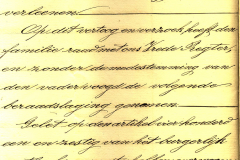 verleenen.
Op dit vertoog en verzoek heeft den
familie raad met ons Vrede Regter,
en zonder de medestemming van
den vader voogd de volgende
beraadslaging genomen.
Gelet op den artikel vier honderd
een en zestig van het burgerlijk